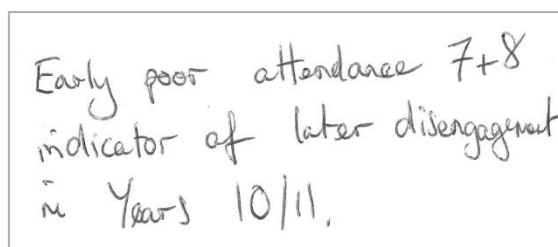 Early poor attendance 7+8
indicator of later disengagement
in Years 10/11.